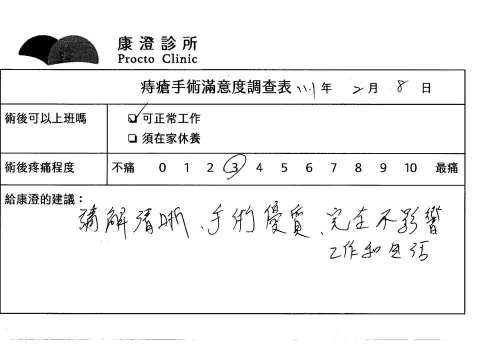 康澄診所
Procto Clinic
痔瘡手術滿意度調查表 111年 2月 8日
術後可以上班嗎
☑ 可正常工作
☐ 須在家休養
術後疼痛程度 不痛 0 1 2 3 4 5 6 7 8 9 10 最痛
給康澄的建議：
講解清晰、手術優質、完全不影響
工作和生活